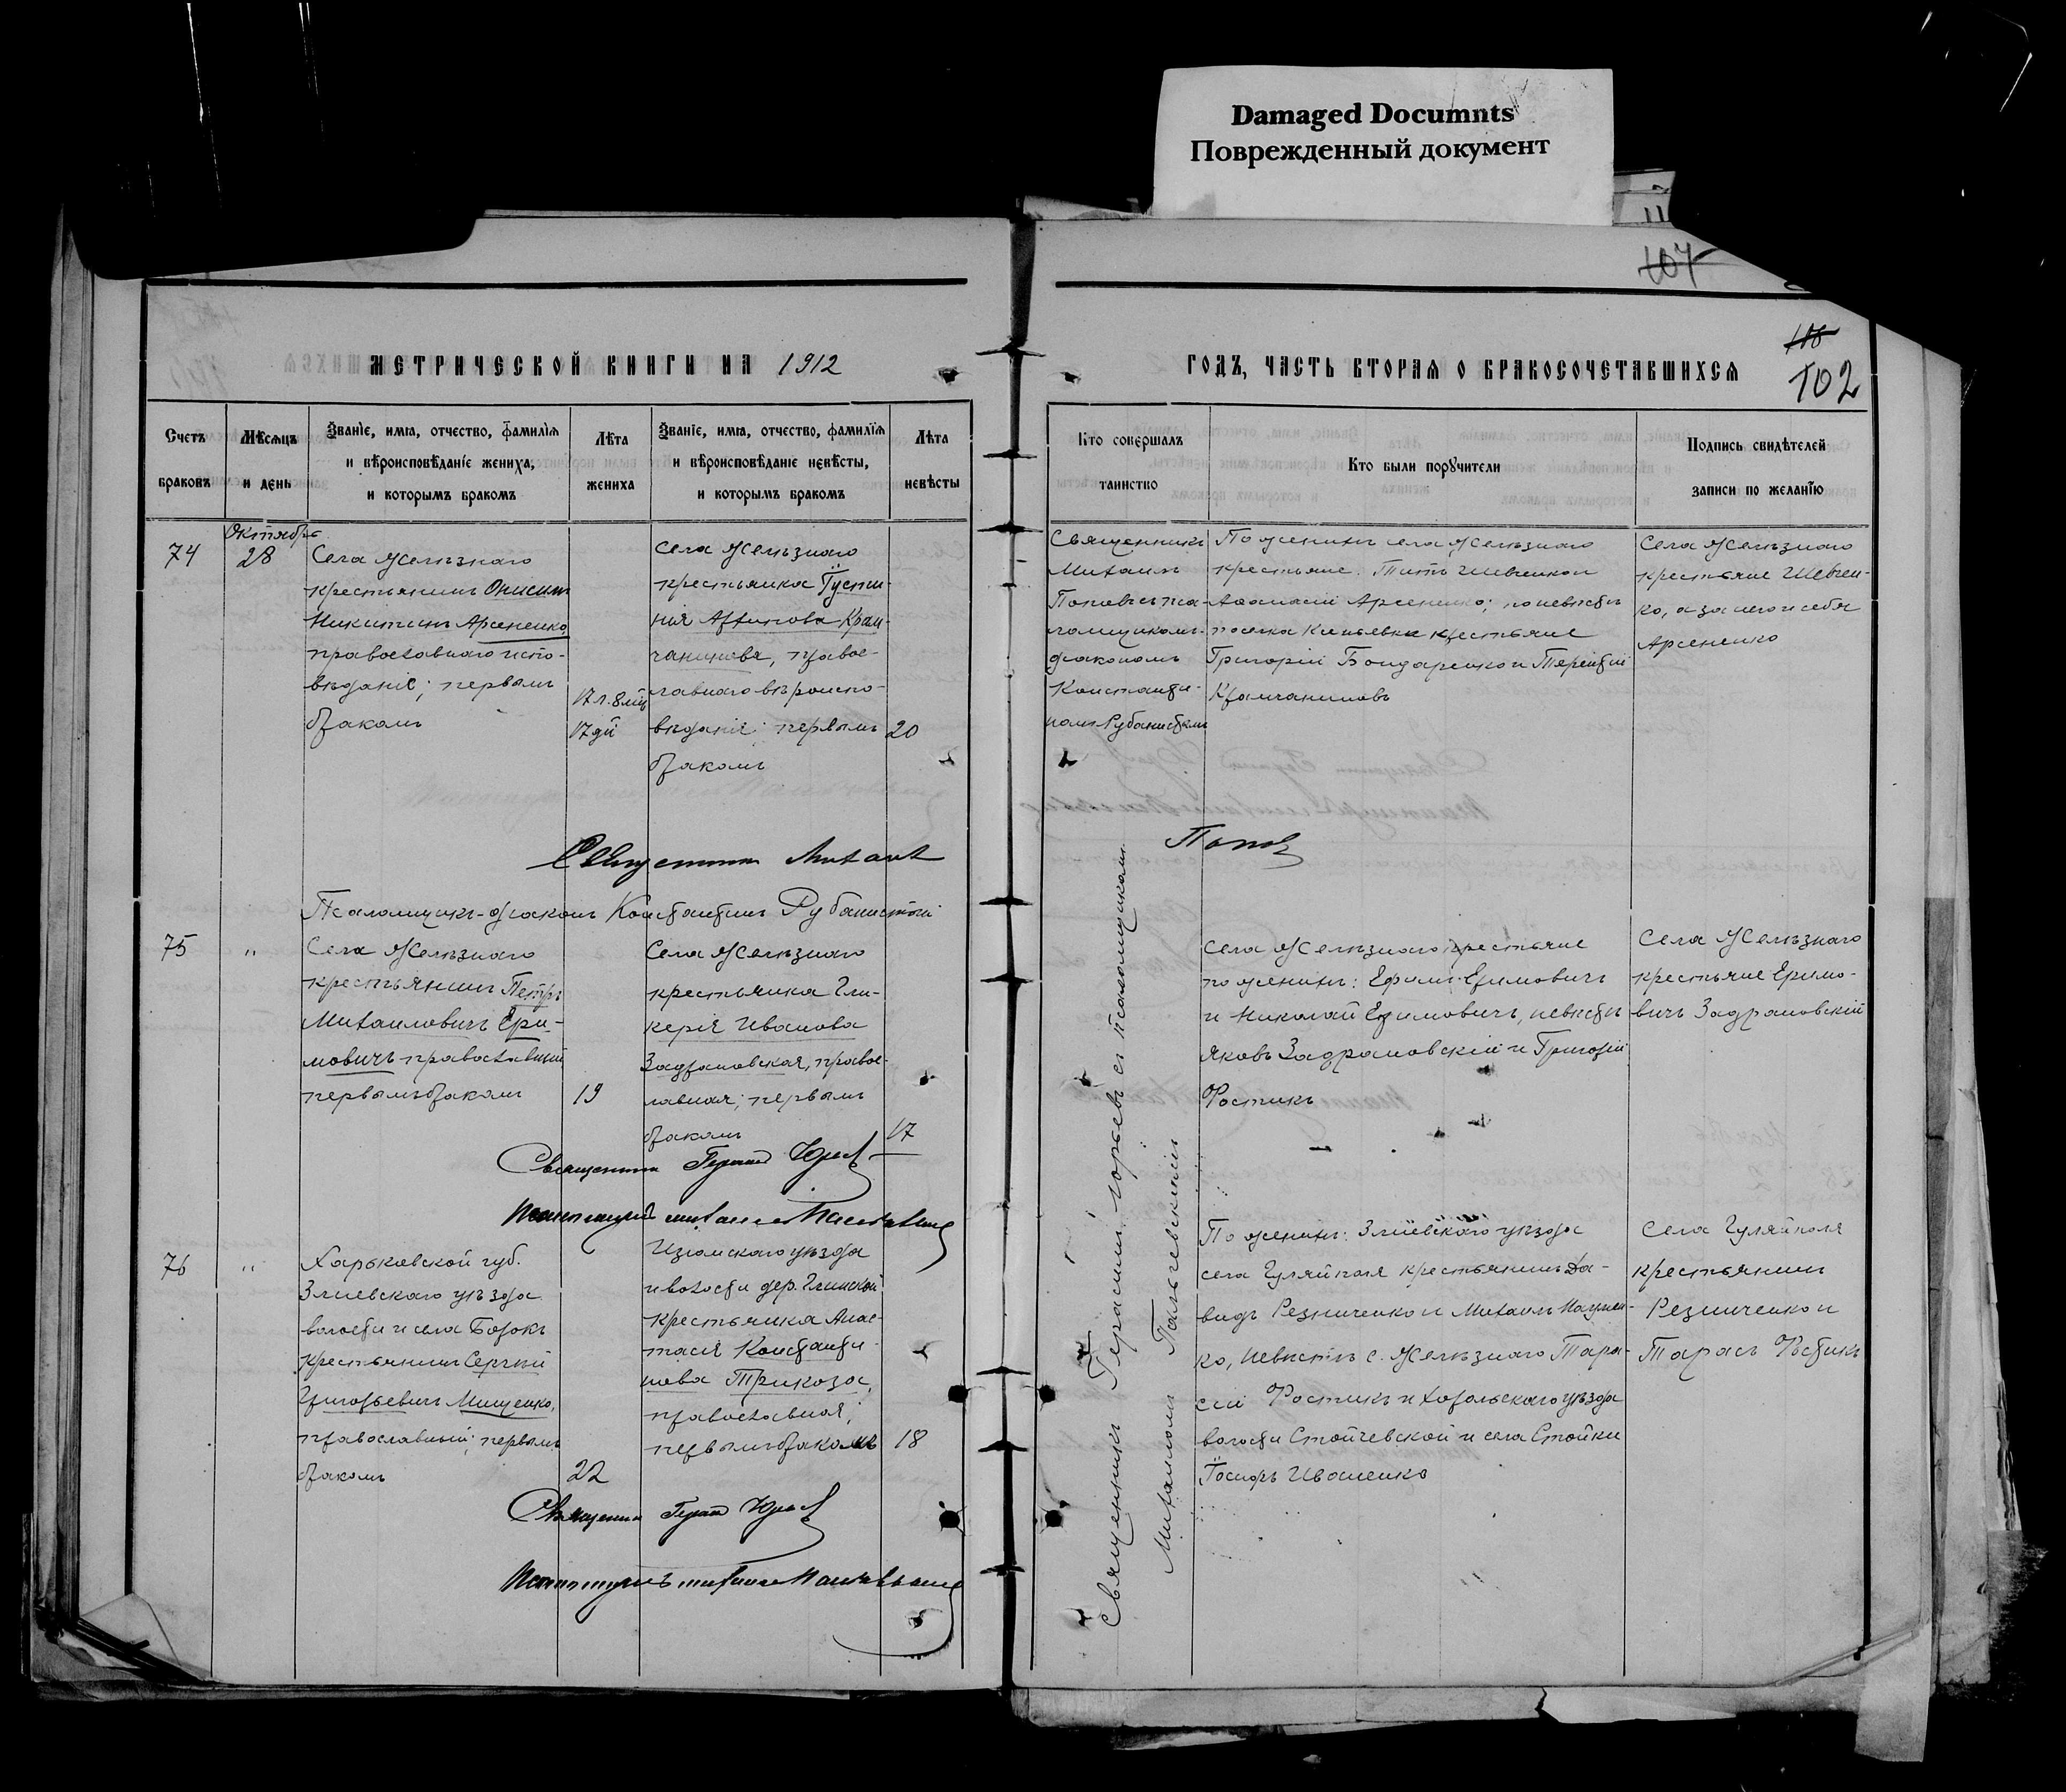 Damaged Documnts
Поврежденный документ
107
106
102
МЕТРИЧЕСКОЙ КНИГИ НА 1912
ГОДЪ, ЧАСТЬ ВТОРАЯ О БРАКОСОЧЕТАВШИХСЯ
Счетъ браковъ
Мѣсяцъ и день
Званіе, имя, отчество, фамилія
и вѣроисповѣданіе жениха,
и которымъ бракомъ
Лѣта жениха
Званіе, имя, отчество, фамилія
и вѣроисповѣданіе невѣсты,
и которымъ бракомъ
Лѣта невѣсты
Кто совершалъ таинство
Кто были поручители
Подпись свидѣтелей
записи по желанію
74
Октября
28
Села Желѣзнаго
крестьянинъ Онисимъ
Никитинъ Арсененко,
православнаго испо-
вѣданіе; первымъ
бракомъ
17 л. 8 мѣс
17 дн
Села Желѣзнаго
крестьянка Густи-
нія
чанинова, правос-
лавнаго вѣроиспо-
вѣданіе; первымъ
бракомъ
20
Священникъ
Михаилъ
Поповъ съ пса-
ломщикомъ-
діакономъ
Константи-
номъ Рубанистымъ
По женихѣ села Желѣзнаго
крестьяне: Титъ Шевченко и
Аѳанасій Арсененко; по невѣстѣ
поселка крестьяне
Григорій Бондаренко и Терентій
Крамчаниновъ
Села Желѣзнаго
крестьяне Шевчен-
ко, а за него и себя
Арсененко
Священникъ Михаилъ Поповъ
Псаломщикъ-діаконъ Константинъ Рубанистый
75
"
Села Желѣзнаго
крестьянинъ Петръ
Михаиловичъ Ери-
мовичъ православный
первымъ бракомъ
19
Села Желѣзнаго
крестьянка Гли-
керія Иванова
Задрановская, правос-
лавная; первымъ
бракомъ
17
Села Желѣзнаго крестьяне
по женихѣ: Ефимъ Еримовичъ
и Николай Еримовичъ, невѣстѣ
Яковъ Задрановскій и Григорій
Ростикъ
Села Желѣзнаго
крестьяне Еримо-
вичъ Задрановскій
Священникъ
Псаломщикъ Михаилъ
76
"
Харьковской губ.
Зміевскаго уѣзда
волости и села Борокъ
крестьянинъ Сергѣй
Григорьевичъ Мищенко,
православный; первымъ
бракомъ
22
Изюмскаго уѣзда
и волости дер. Глинской
крестьянка Анас-
тасія Константи-
нова Трикоза,
православная;
первымъ бракомъ
18
По женихѣ: Зміевскаго уѣзда
села Гуляйполя крестьянинъ Да-
видъ Резниченко и Михаилъ Наумен-
ко, невѣстѣ с. Желѣзнаго Тара-
сій Ростикъ и Хорольскаго уѣзда
волости и села
Іосифъ Иваненко
Села Гуляйполя
крестьянинъ
Резниченко и
Тарасъ Ростикъ
Священникъ
Псаломщикъ Михаилъ
Священникъ Герасимъ съ псаломщикомъ
Михаиломъ